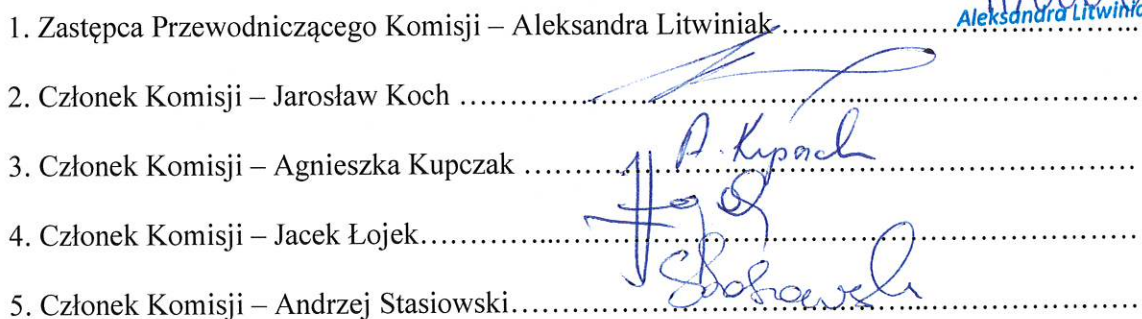 1. Zastępca Przewodniczącego Komisji – Aleksandra Litwiniak.......................... Aleksandra Litwinia
2. Członek Komisji – Jarosław Koch ..........................
3. Członek Komisji – Agnieszka Kupczak .......................... A. Kupczak
4. Członek Komisji – Jacek Łojek..........................
5. Członek Komisji – Andrzej Stasiowski..........................